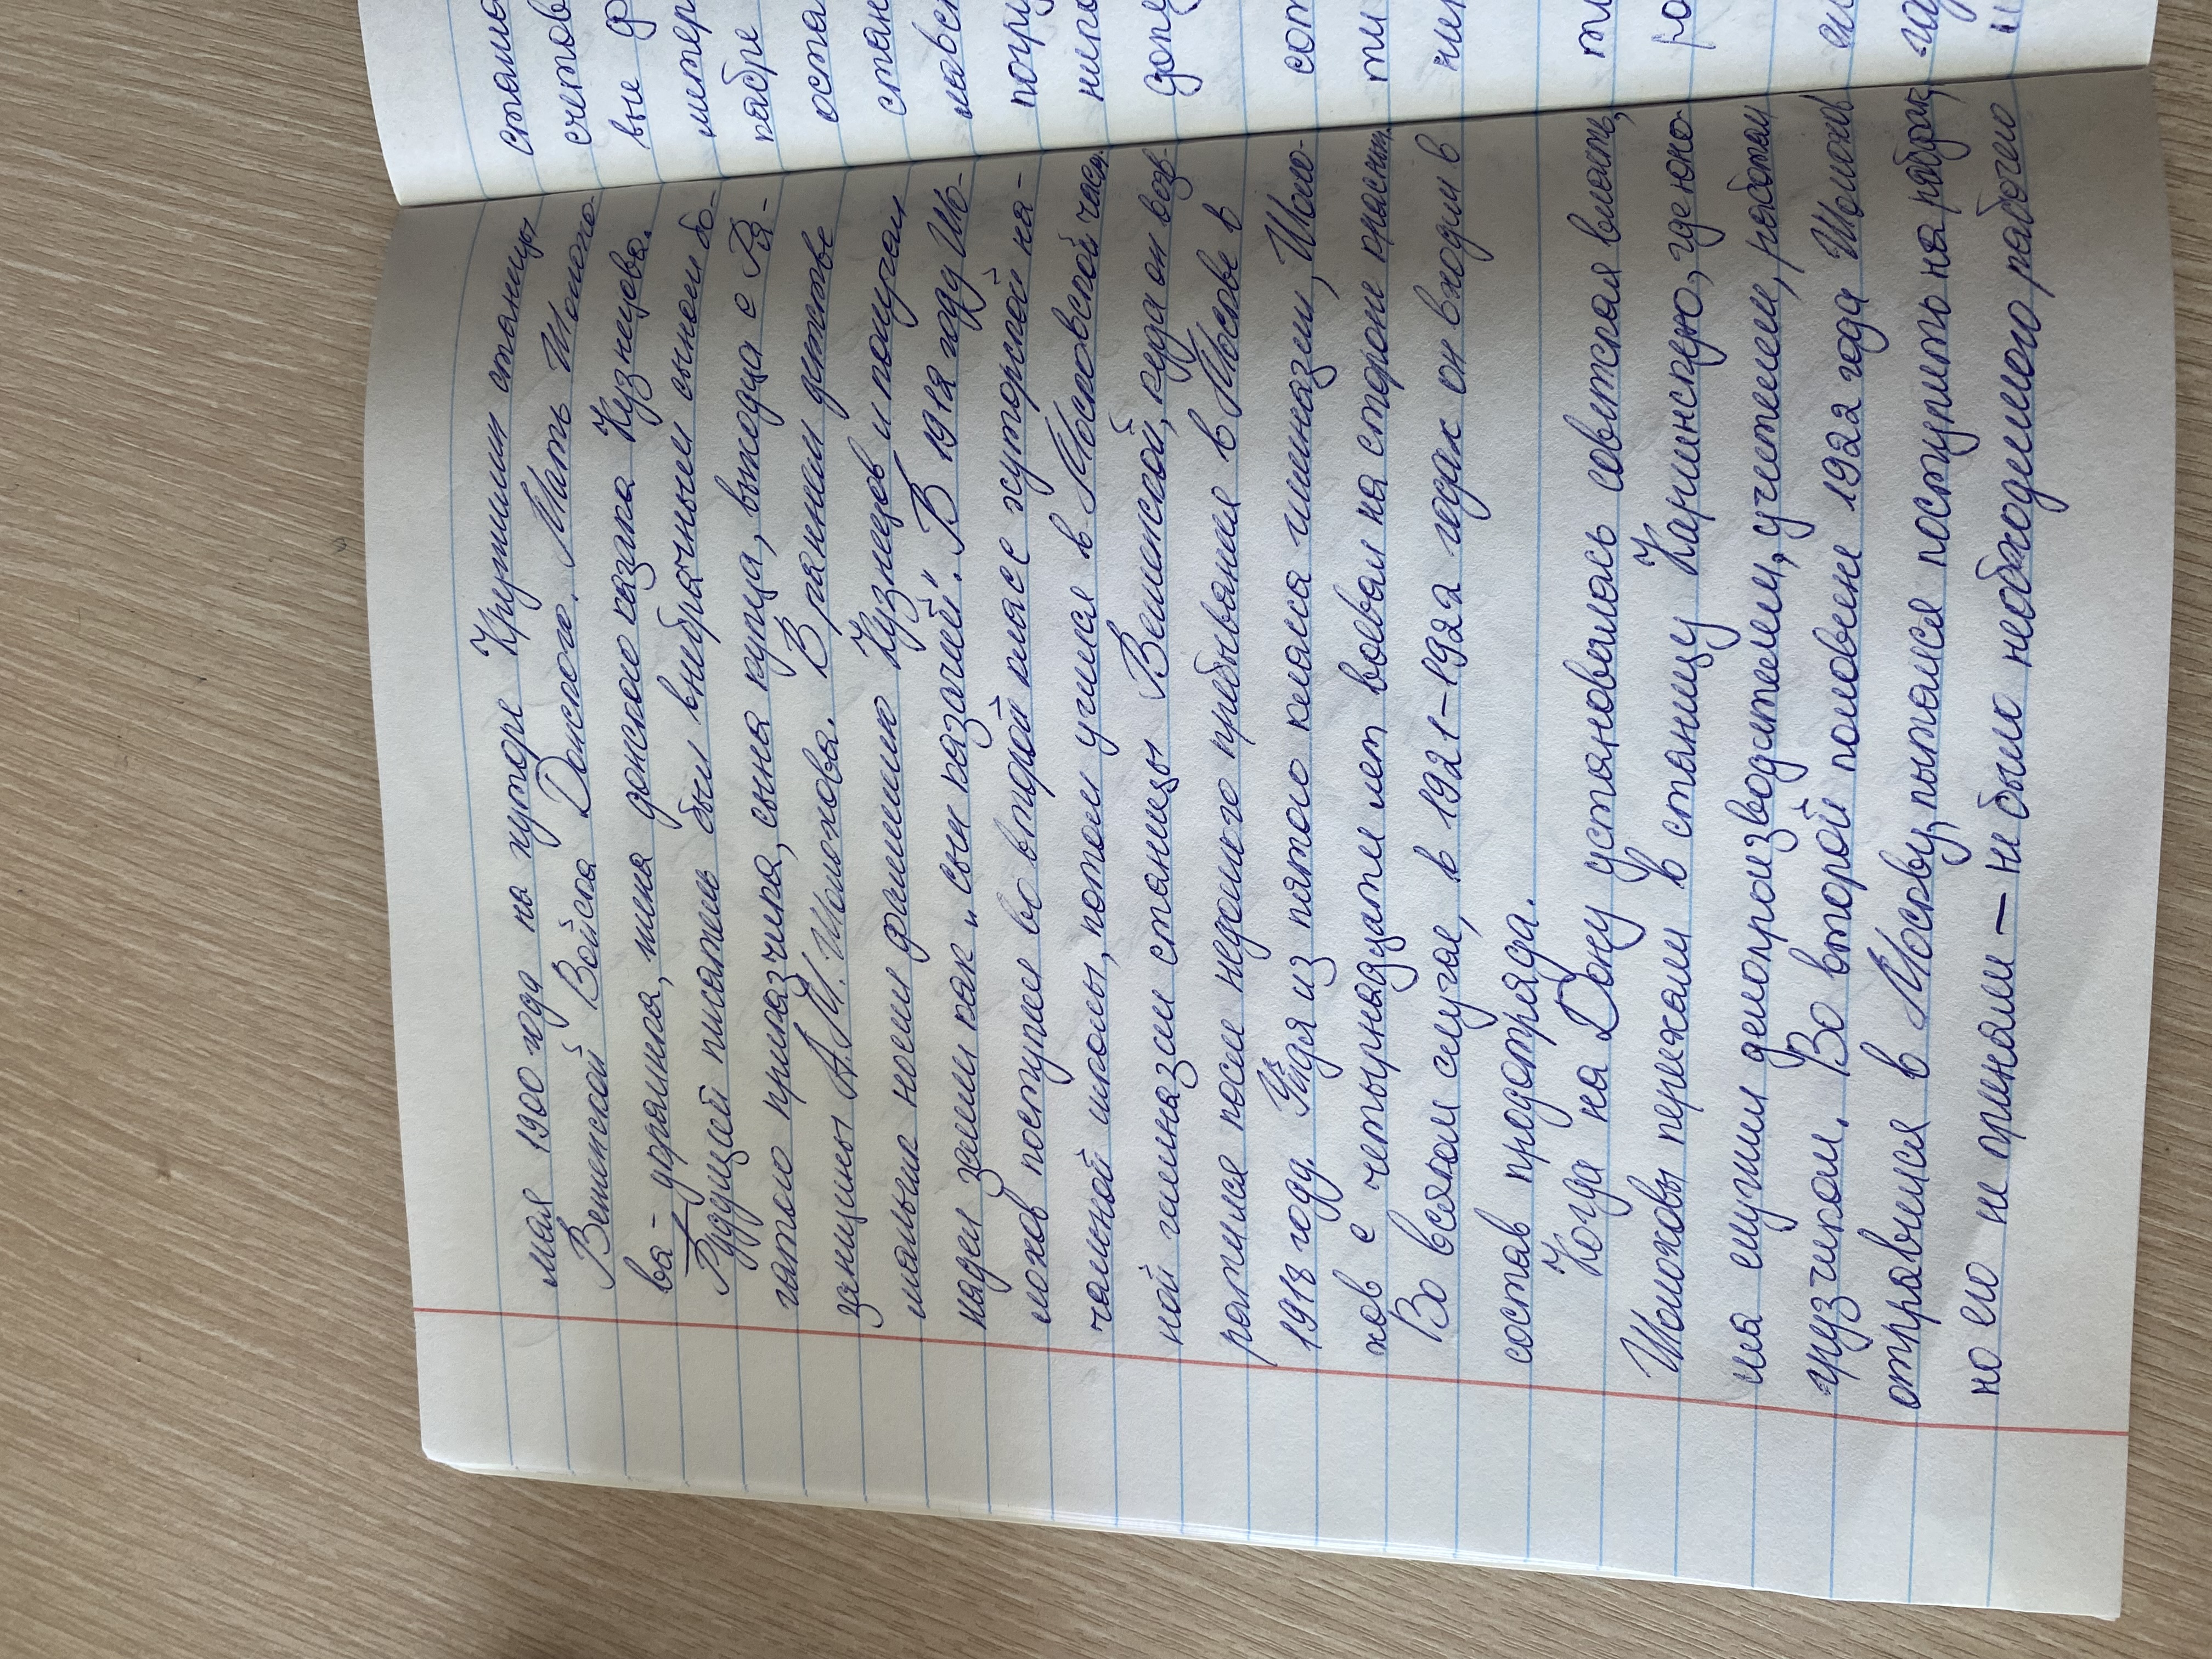 мая 1900 года на хуторе Кружилин станицы
Вешенской Войска Донского. Мать Шолохо-
ва - украинка, жена донского казака Кузнецова.
Будущей писатель был внебрачным сыном бо-
гатого приказчика, сына купца, выходца с Ря-
занщины А.М. Шолохова. В раннем детстве
мальчик носил фамилию Кузнецов и получал
надел земли как „сын казачий". В 1912 году Шо-
лохов поступил во второй класс хуторской на-
чальной школы, потом учился в Московской част-
ной гимназии станицы Вешенской, куда он воз-
ратился после недолгого пребывания в Москве в
1918 году. Уйдя из пятого класса гимназии, Шоло-
хов с четырнадцати лет воевал на стороне красных.
Во всяком случае, в 1921-1922 годах он входил в
состав продотряда.
Когда на Дону установилась советская власть,
Шолоховы переехали в станицу Каргинскую, где юно-
ша служил делопроизводителем, учителем, работал
грузчиком. Во второй половине 1922 года Шолохов
отправился в Москву, пытался поступить на рабфак,
но его не приняли — не было необходимого рабочего